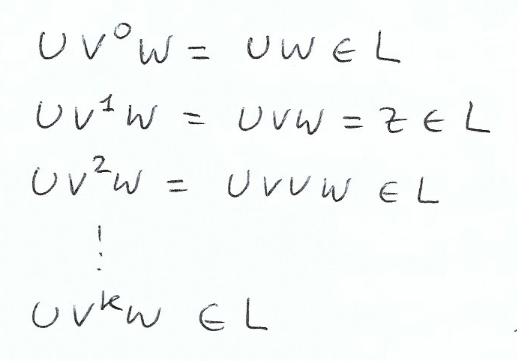 UV⁰W = UW ∈ L
UV¹W = UVW = Z ∈ L
UV²W = UVVW ∈ L
⋮
UVᵏW ∈ L